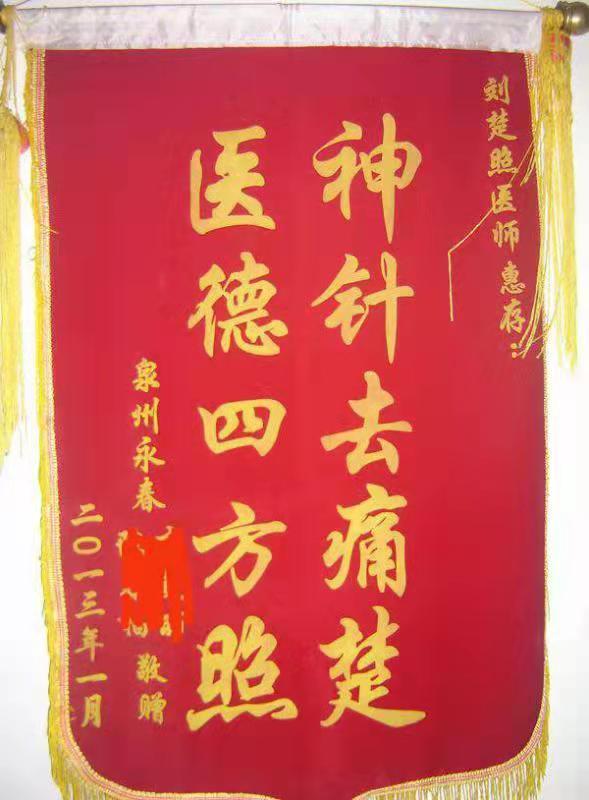 刘楚照医师惠存：
神针去痛楚
医德四方照
泉州永春
敬赠
二〇一三年一月